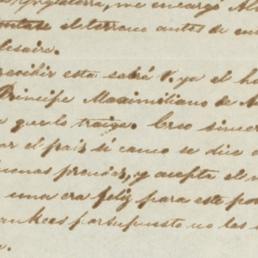 Inglaterra, me encargó Al
el terreno antes de em
lesaire.
recibir esta sabrá V. ya el h
Príncipe Maximiliano de A
a que lo traiga. Creo sincer
ar el país si como se dice a
buenas prendas, y acepte el n
una era feliz para este po
ankees por supuesto no les
a.